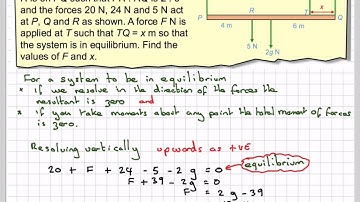 and the forces 20 N, 24 N and 5 N act
at P, Q and R as shown. A force F N is
applied at T such that TQ = x m so that
the system is in equilibrium. Find the
values of F and x.
P R T x Q
4 m 6 m
5 N 2g N
For a system to be in equilibrium
* If we resolve in the direction of the forces the
resultant is zero and
* if you take moments about any point the total moment of forces
is zero.
Resolving vertically upwards as +vE
20 + F + 24 - 5 - 2g = 0 equilibrium
F + 39 - 2g = 0
F = 2g - 39